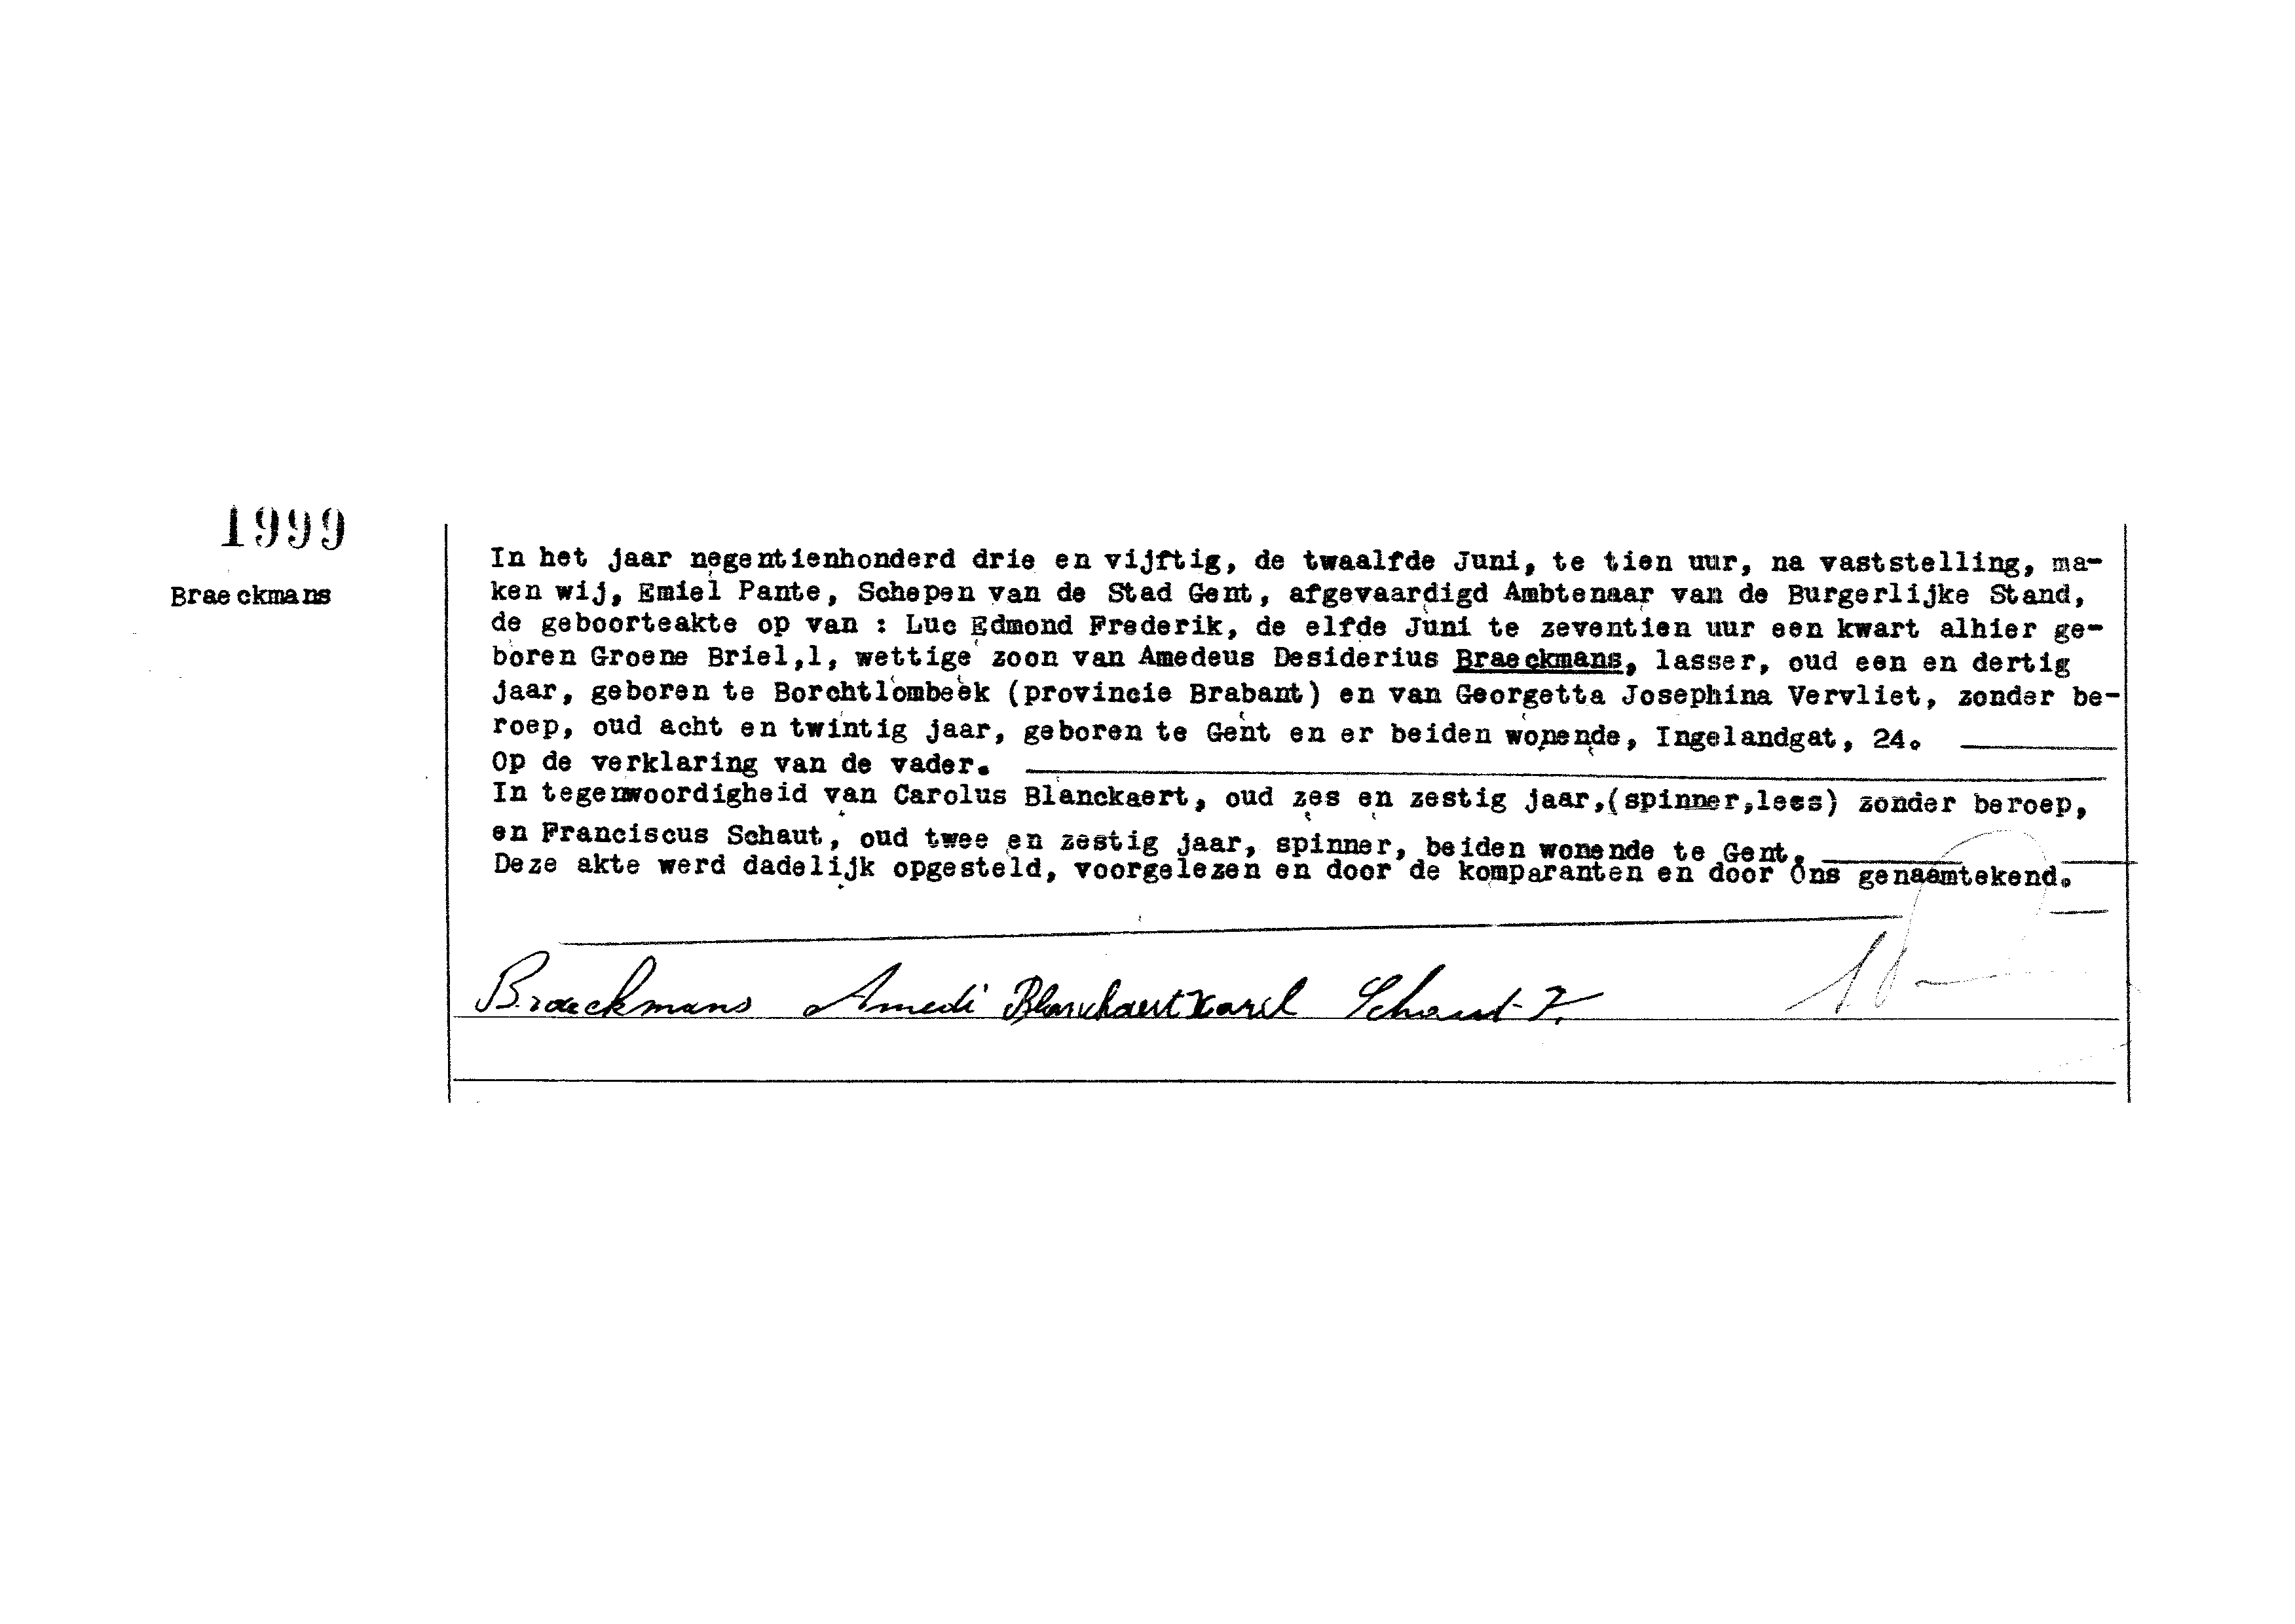 1999
Braeckmans
In het jaar negentienhonderd drie en vijftig, de twaalfde Juni, te tien uur, na vaststelling, ma-
ken wij, Emiel Pante, Schepen van de Stad Gent, afgevaardigd Ambtenaar van de Burgerlijke Stand,
de geboorteakte op van : Luc Edmond Frederik, de elfde Juni te zeventien uur een kwart alhier ge-
boren Groene Briel,1, wettige zoon van Amedeus Desiderius Braeckmans, lasser, oud een en dertig
jaar, geboren te Borchtlombeek (provincie Brabant) en van Georgetta Josephina Vervliet, zonder be-
roep, oud acht en twintig jaar, geboren te Gent en er beiden wonende, Ingelandgat, 24.
Op de verklaring van de vader.
In tegenwoordigheid van Carolus Blanckaert, oud zes en zestig jaar,(spinner,lees) zonder beroep,
en Franciscus Schaut, oud twee en zestig jaar, spinner, beiden wonende te Gent.
Deze akte werd dadelijk opgesteld, voorgelezen en door de komparanten en door Ons genaamtekend.
Braeckmans Amedé Blanckaert Karel Schaut F.